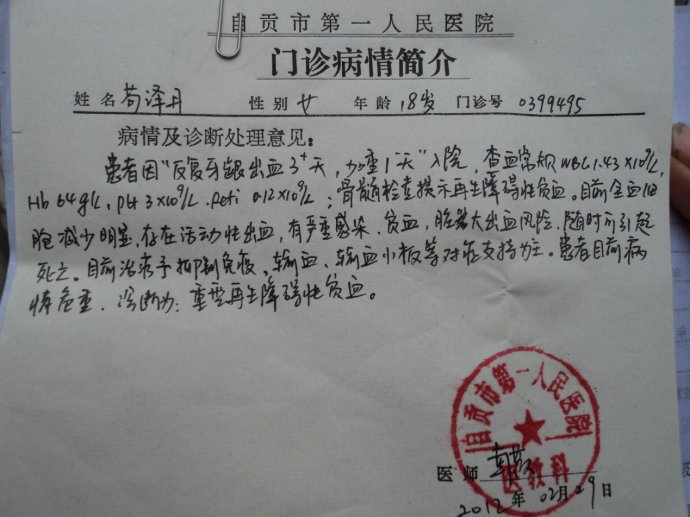 自贡市第一人民医院
门诊病情简介
姓名 苟泽月 性别 女 年龄 18岁 门诊号 0399495
病情及诊断处理意见:
患者因"反复牙龈出血3+天,加重1天"入院,查血常规WBC1.43×10⁹/L,
Hb 64g/L, plt 3×10⁹/L. Reti 0.12×10⁹/L;骨髓检查提示再生障碍性贫血。目前全血细
胞减少明显,存在活动性出血,有严重感染、贫血,脏器大出血风险,随时可引起
死亡。目前治疗予抑制免疫、输血、输血小板等对症支持为主。患者目前病
情危重,诊断为:重型再生障碍性贫血。
自贡市第一人民医院
医教科
医师
2012年02月29日